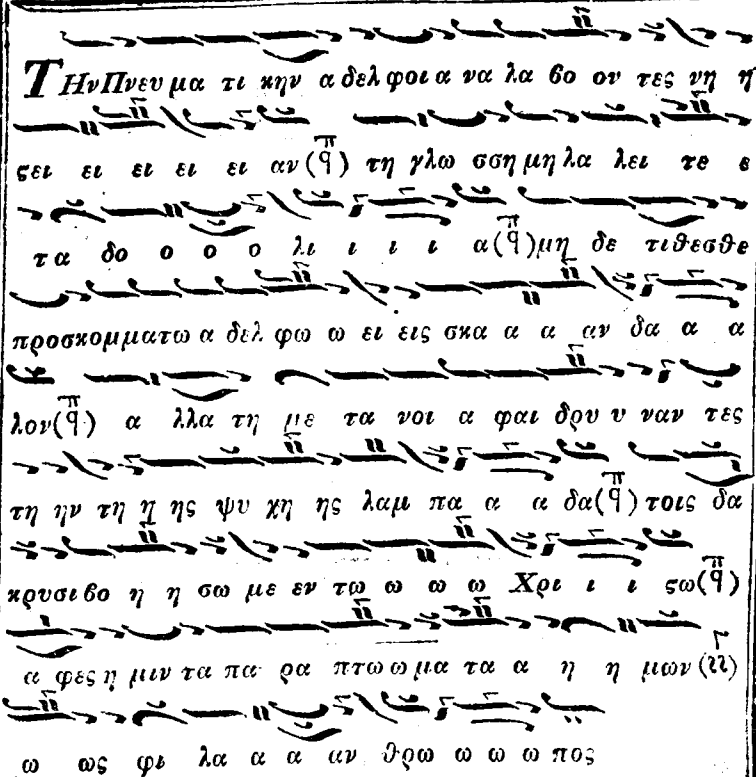 ΤΗν Πνευ μα τι κην α δελ φοι α να λα βο ον τες νη η
ςει ει ει ει ει αν (π̈ q) τη γλω σση μη λα λει τε ε
τα δο ο ο ο λι ι ι ι α (π̈ q) μη δε τιθεσθε
προσκομματω α δελ φω ω ει εις σκα α α αν δα α α
λον (π̈ q) α λλα τη με τα νοι α φαι δρυ υ ναν τες
τη ην τη η ης ψυ χη ης λαμ πα α α δα (π̈ q) τοις δα
κρυσι βο η η σω με εν τω ω ω ω Χρι ι ι ςω (π̈ q)
α φες η μιν τα πα ρα πτω ω μα τα α η η μων
ω ως φι λα α α αν θρω ω ω ω πος